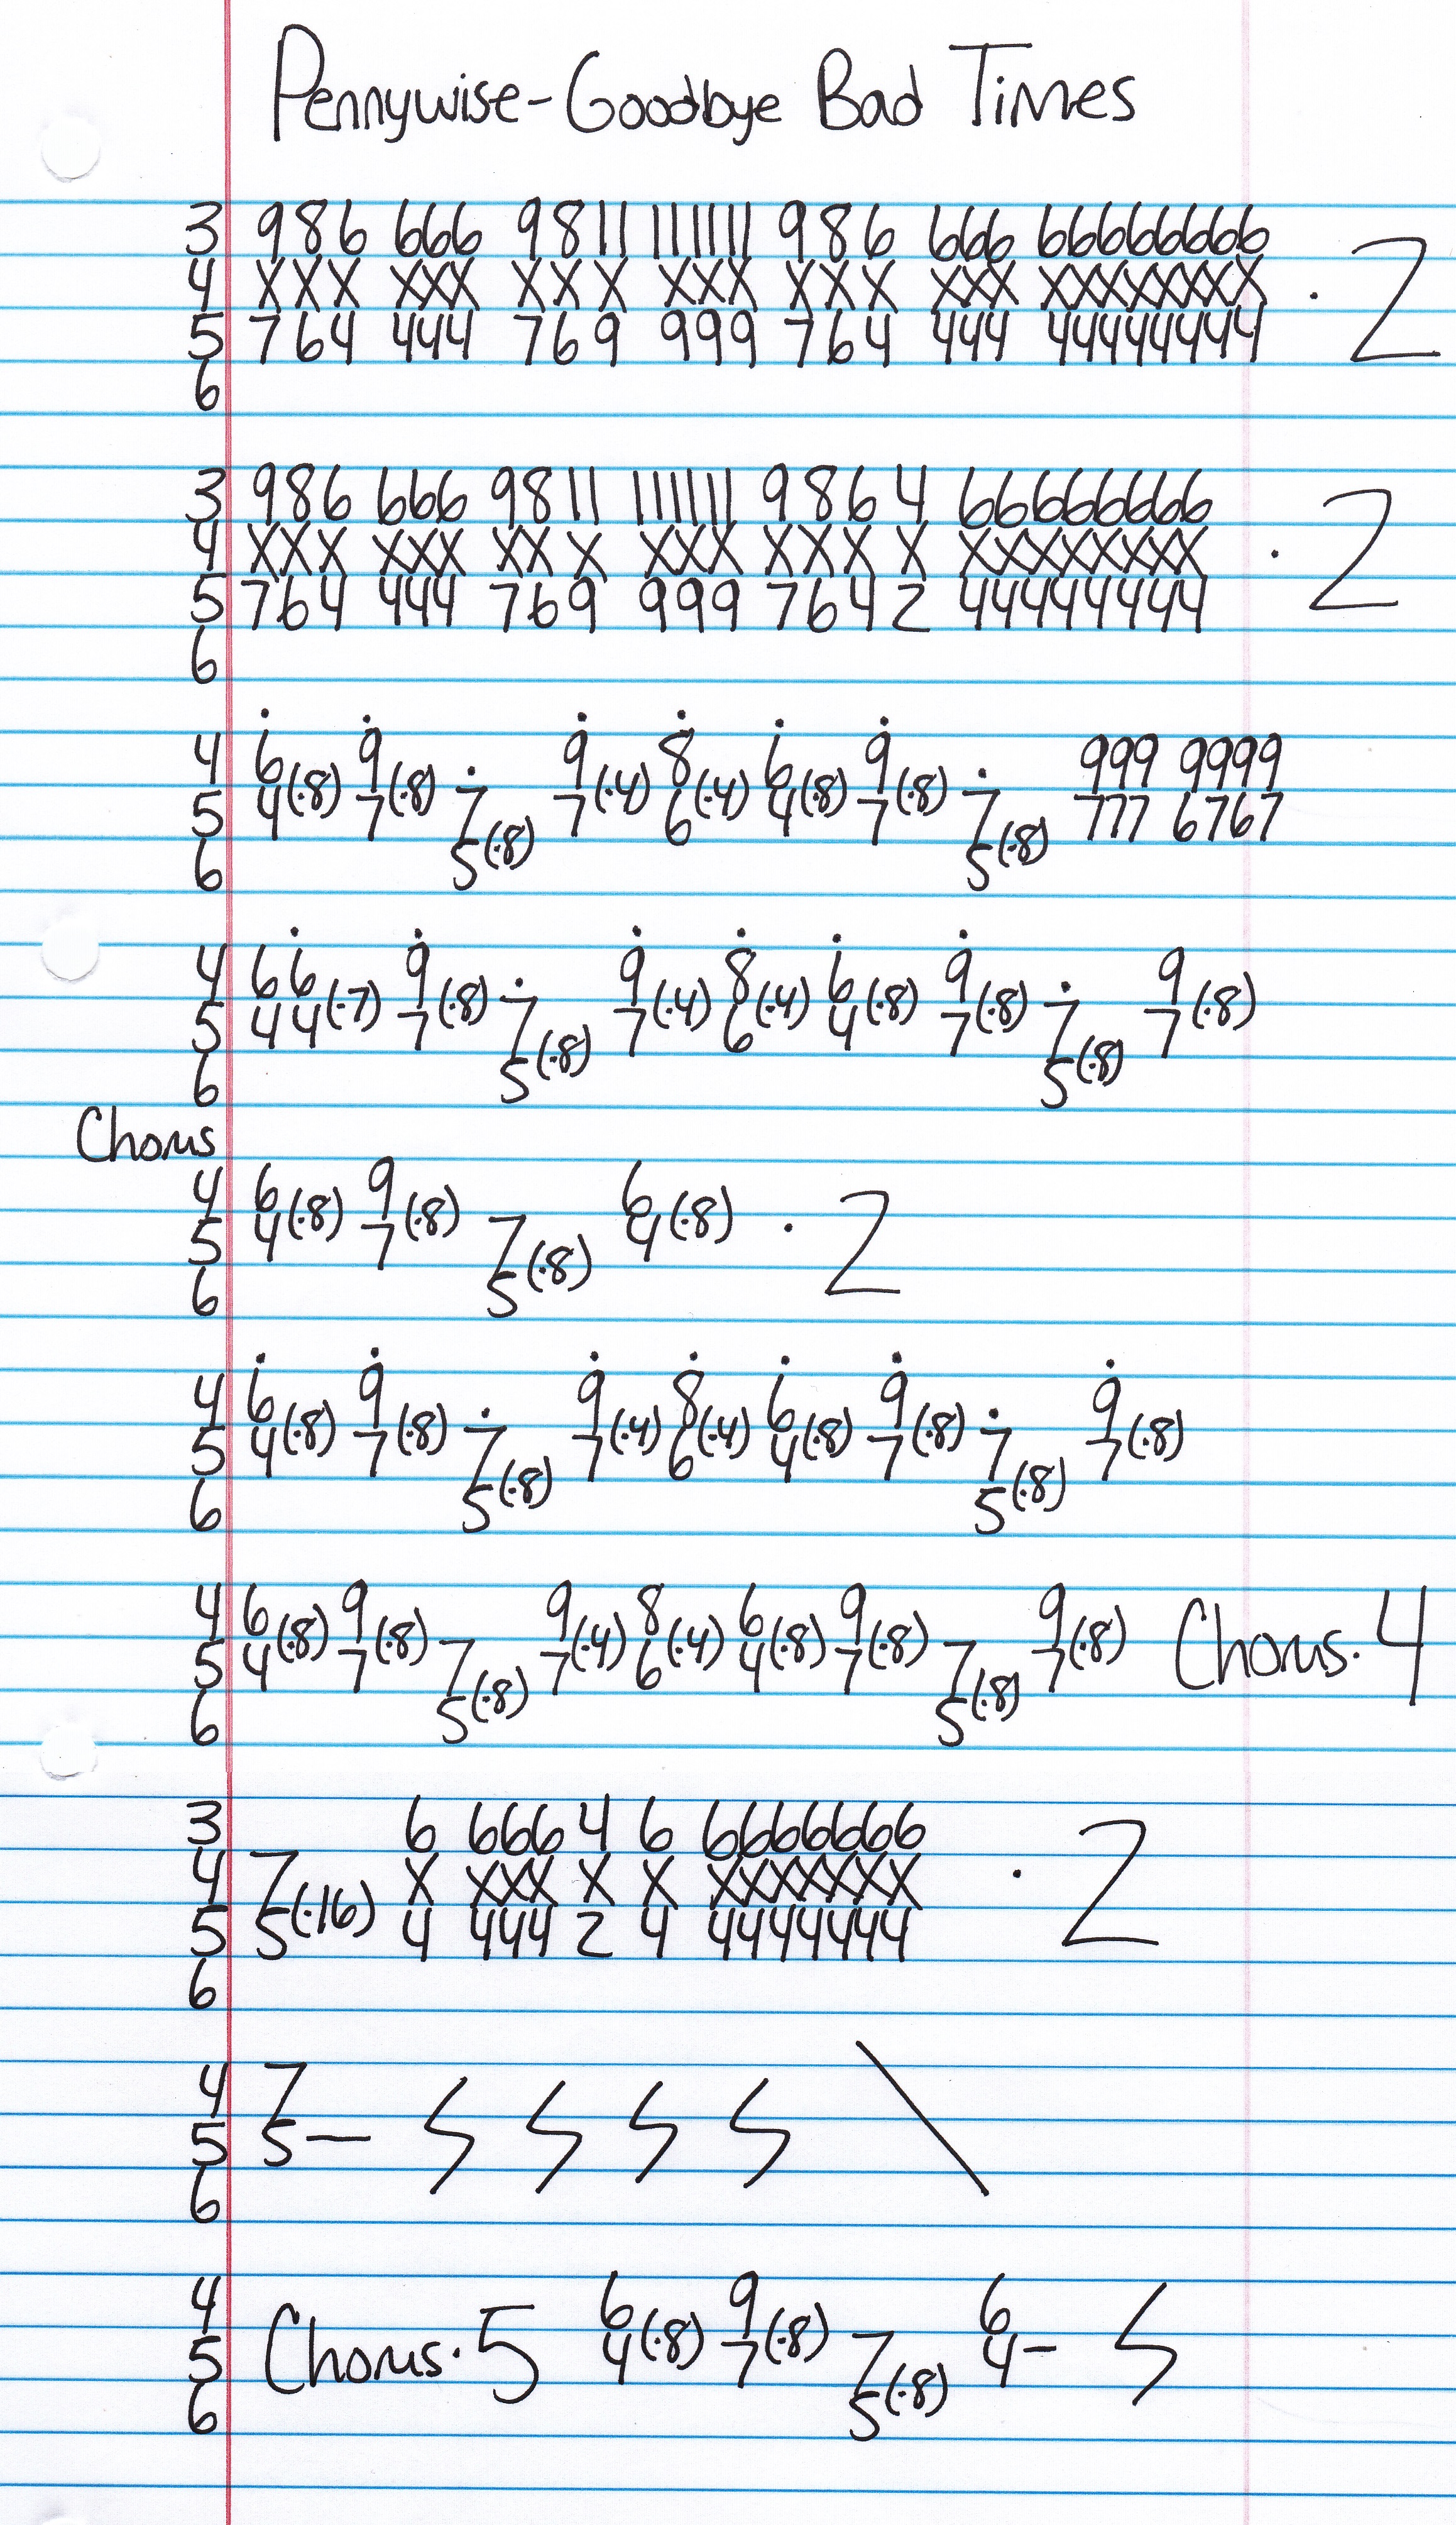 Pennywise-Goodbye Bad Times
3 986 666 9811 111111 986 666 66666666 · 2
4 XXX XXX XXX XXX XXX XXX XXXXXXXX
5 764 444 769 999 764 444 44444444
6
3 986 666 9811 111111 9864 66666666 · 2
4 XXX XXX XXX XXX XXXX XXXXXXXX
5 764 444 769 999 7642 44444444
6
4 6 9 9 8 6 9 999 9999
5 4(·8) 7(·8) 7 7(·4) 6(·4) 4(·8) 7(·8) 7 777 6767
6 5(·8) 5(·8)
4 6 6 9 9 8 6 9 9
5 4 4(·7) 7(·8) 7 7(·4) 6(·4) 4(·8) 7(·8) 7 7(·8)
6 5(·8) 5(·8)
Chorus
4 6 9 6
5 4(·8) 7(·8) 7 4(·8) · 2
6 5(·8)
4 6 9 9 8 6 9 9
5 4(·8) 7(·8) 7 7(·4) 6(·4) 4(·8) 7(·8) 7 7(·8)
6 5(·8) 5(·8)
4 6 9 9 8 6 9 9 Chorus·4
5 4(·8) 7(·8) 7 7(·4) 6(·4) 4(·8) 7(·8) 7 7(·8)
6 5(·8) 5(·8)
3 6 666 4 6 6666666 · 2
4 7 X XXX X X XXXXXXX
5 5(·16) 4 444 2 4 4444444
6
4 7
5 5—
6
4 6 9 6
5 Chorus·5 4(·8) 7(·8) 7 4–
6 5(·8)